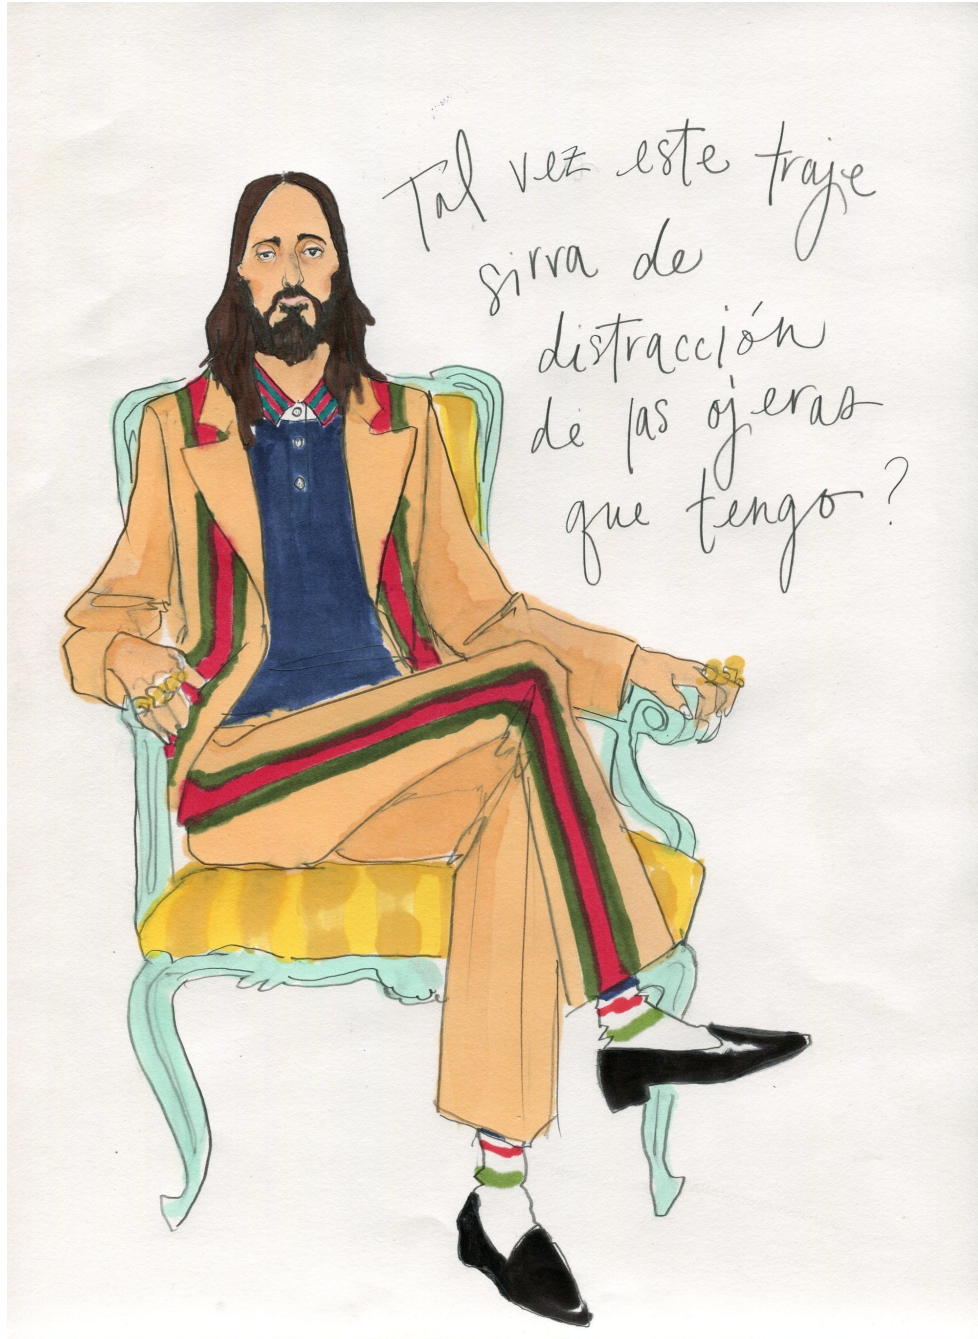 Tal vez este traje
sirva de
distracción
de las ojeras
que tengo?